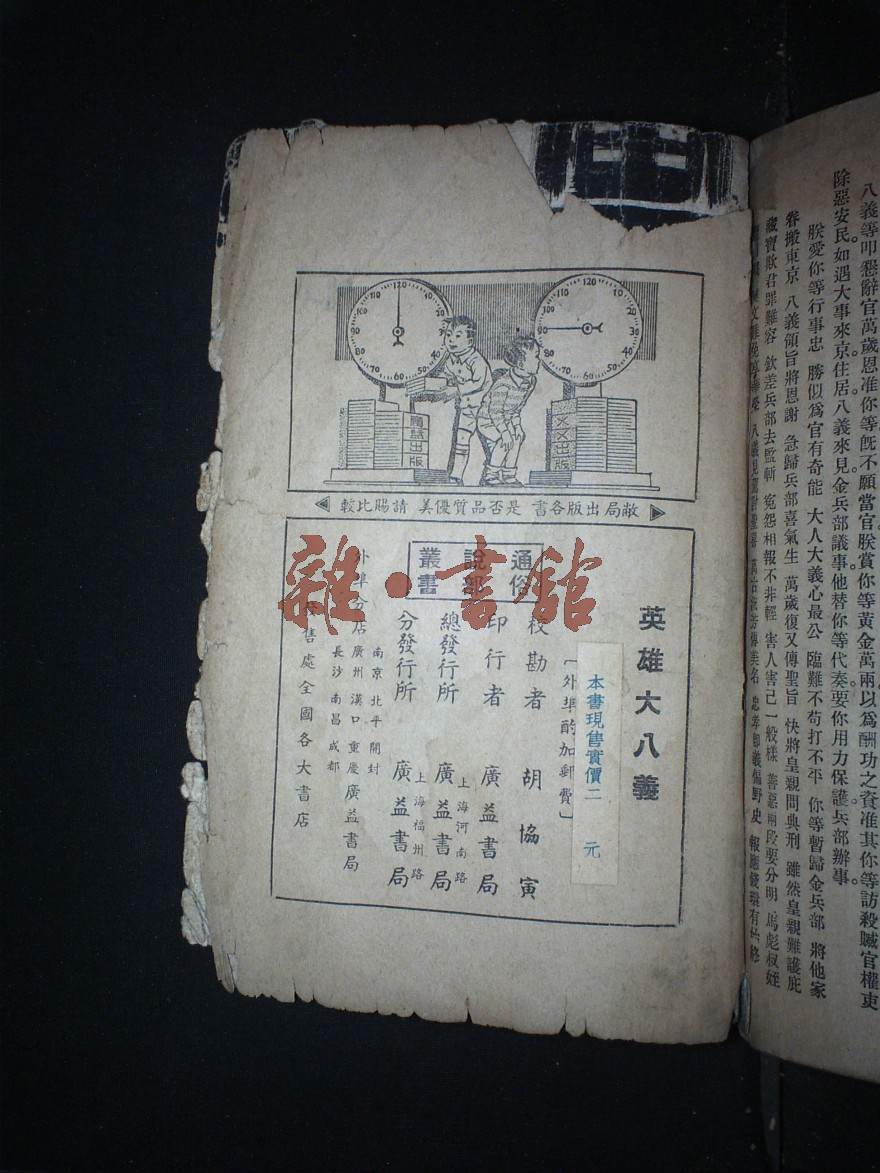 八義等叩懇辭官萬歲恩准你等旣不願當官。朕賞你等黃金萬兩以爲酬功之資准其你等訪殺贓官權吏
除惡安民。如遇大事來京住居。八義來見金兵部議事。他替你等代奏。要你用力保護兵部辦事。
朕愛你等行事忠 勝似爲官有奇能 大人大義心最公 臨難不苟打不平 你等暫歸金兵部 將他家
眷搬東京 八義領旨將恩謝 急歸兵部喜氣生 萬歲復又傳聖旨 快將皇親問典刑 雖然皇親難護庇
藏寶欺君罪難容 欽差兵部去監斬 寃怨相報不非輕 害人害己一般樣 善惡兩段要分明 馬彪叔姪
120 10 20 30 40 50 60 70 80 90 100 110
120 10 20 30 40 50 60 70 80 90 100 110
出版
出版
敝局出版各書 是否品質優美 請賜比較
通俗
說部
叢書
英雄大八義
本書現售實價二 元
〔外埠酌加郵費〕
校勘者 胡協寅
印行者 廣益書局
上海河南路
總發行所 廣益書局
上海福州路
分發行所 廣益書局
外埠分店
南京 北平 開封
廣州 漢口 重慶
長沙 南昌 成都
廣益書局
售處全國各大書店
雜·書館